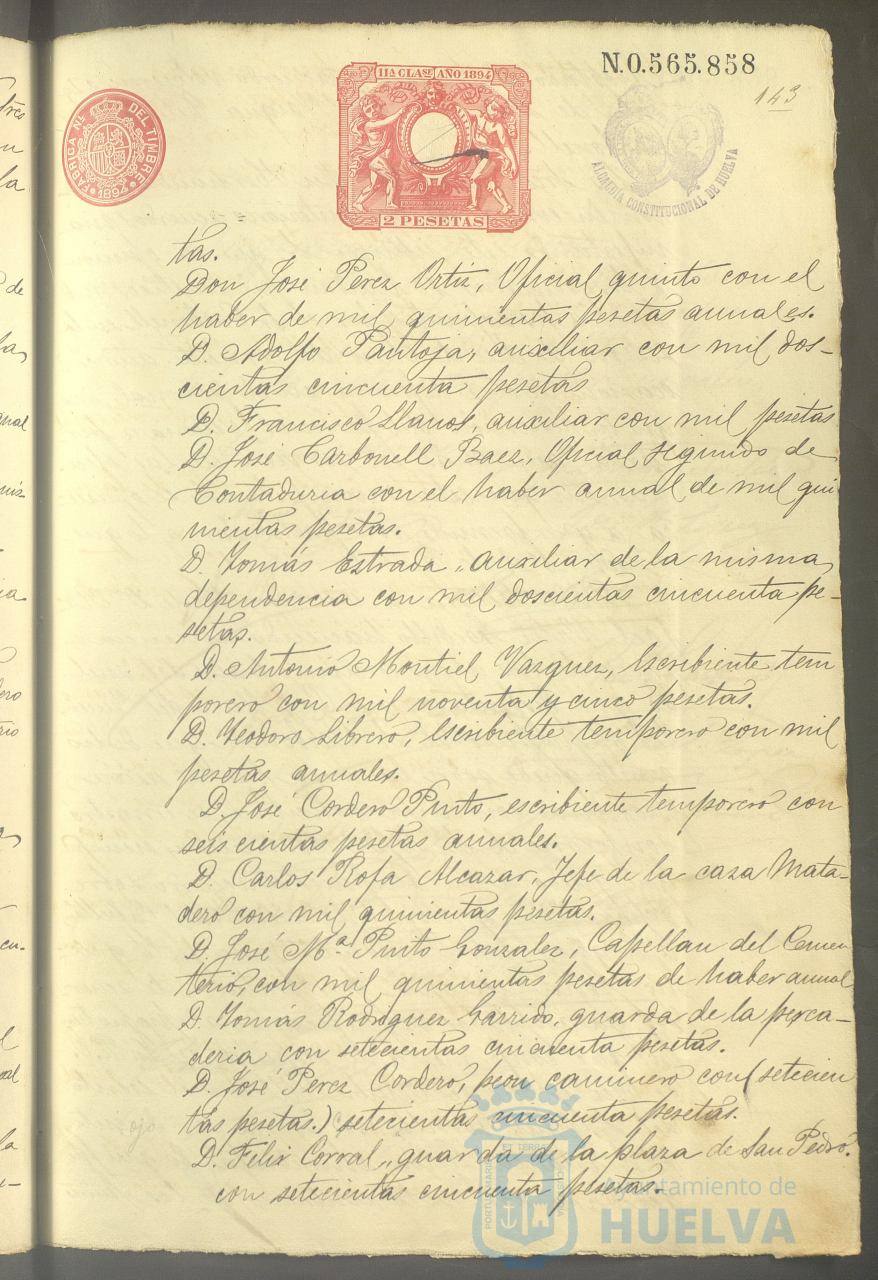 N.0.565.858
143
11ª CLASE AÑO 1894
2 PESETAS
FÁBRICA NL. DEL TIMBRE
1894
ALCALDIA CONSTITUCIONAL DE HUELVA
tas.
Don José Perez Ortiz, Oficial quinto con el
haber de mil quinientas pesetas annales.
D. Adolfo Pantoja, auxiliar con mil dos-
cientas cincuenta pesetas
D. Francisco Llanos, auxiliar con mil pesetas
D. José Carbonell Baez, Oficial segundo de
Contaduria con el haber annal de mil qui
nientas pesetas.
D. Tomás Estrada, auxiliar de la misma
dependencia con mil doscientas cincuenta pe-
setas.
D. Antonio Montiel Vazquez, Escribiente tem
porero con mil noventa y cinco pesetas.
D. Teodoro Librero, Escribiente temporero con mil
pesetas annales.
D. José Cordero Pinto, escribiente temporero con
seis cientas pesetas annales.
D. Carlos Rofa Alcazar, Jefe de la casa Mata-
dero con mil quinientas pesetas.
D. José Mª Pinto Gonzalez, Capellan del Cemen
terio, con mil quinientas pesetas de haber annal
D. Tomás Rodriguez Garrido, guarda de la pesca-
deria con setecientas cincuenta pesetas.
D. José Perez Cordero, peon caminero con (setecien
tas pesetas.) setecientas cincuenta pesetas.
ojo
D. Felix Corral, guarda de la plaza de San Pedro.
con setecientas cincuenta pesetas.
Ayuntamiento de
HUELVA